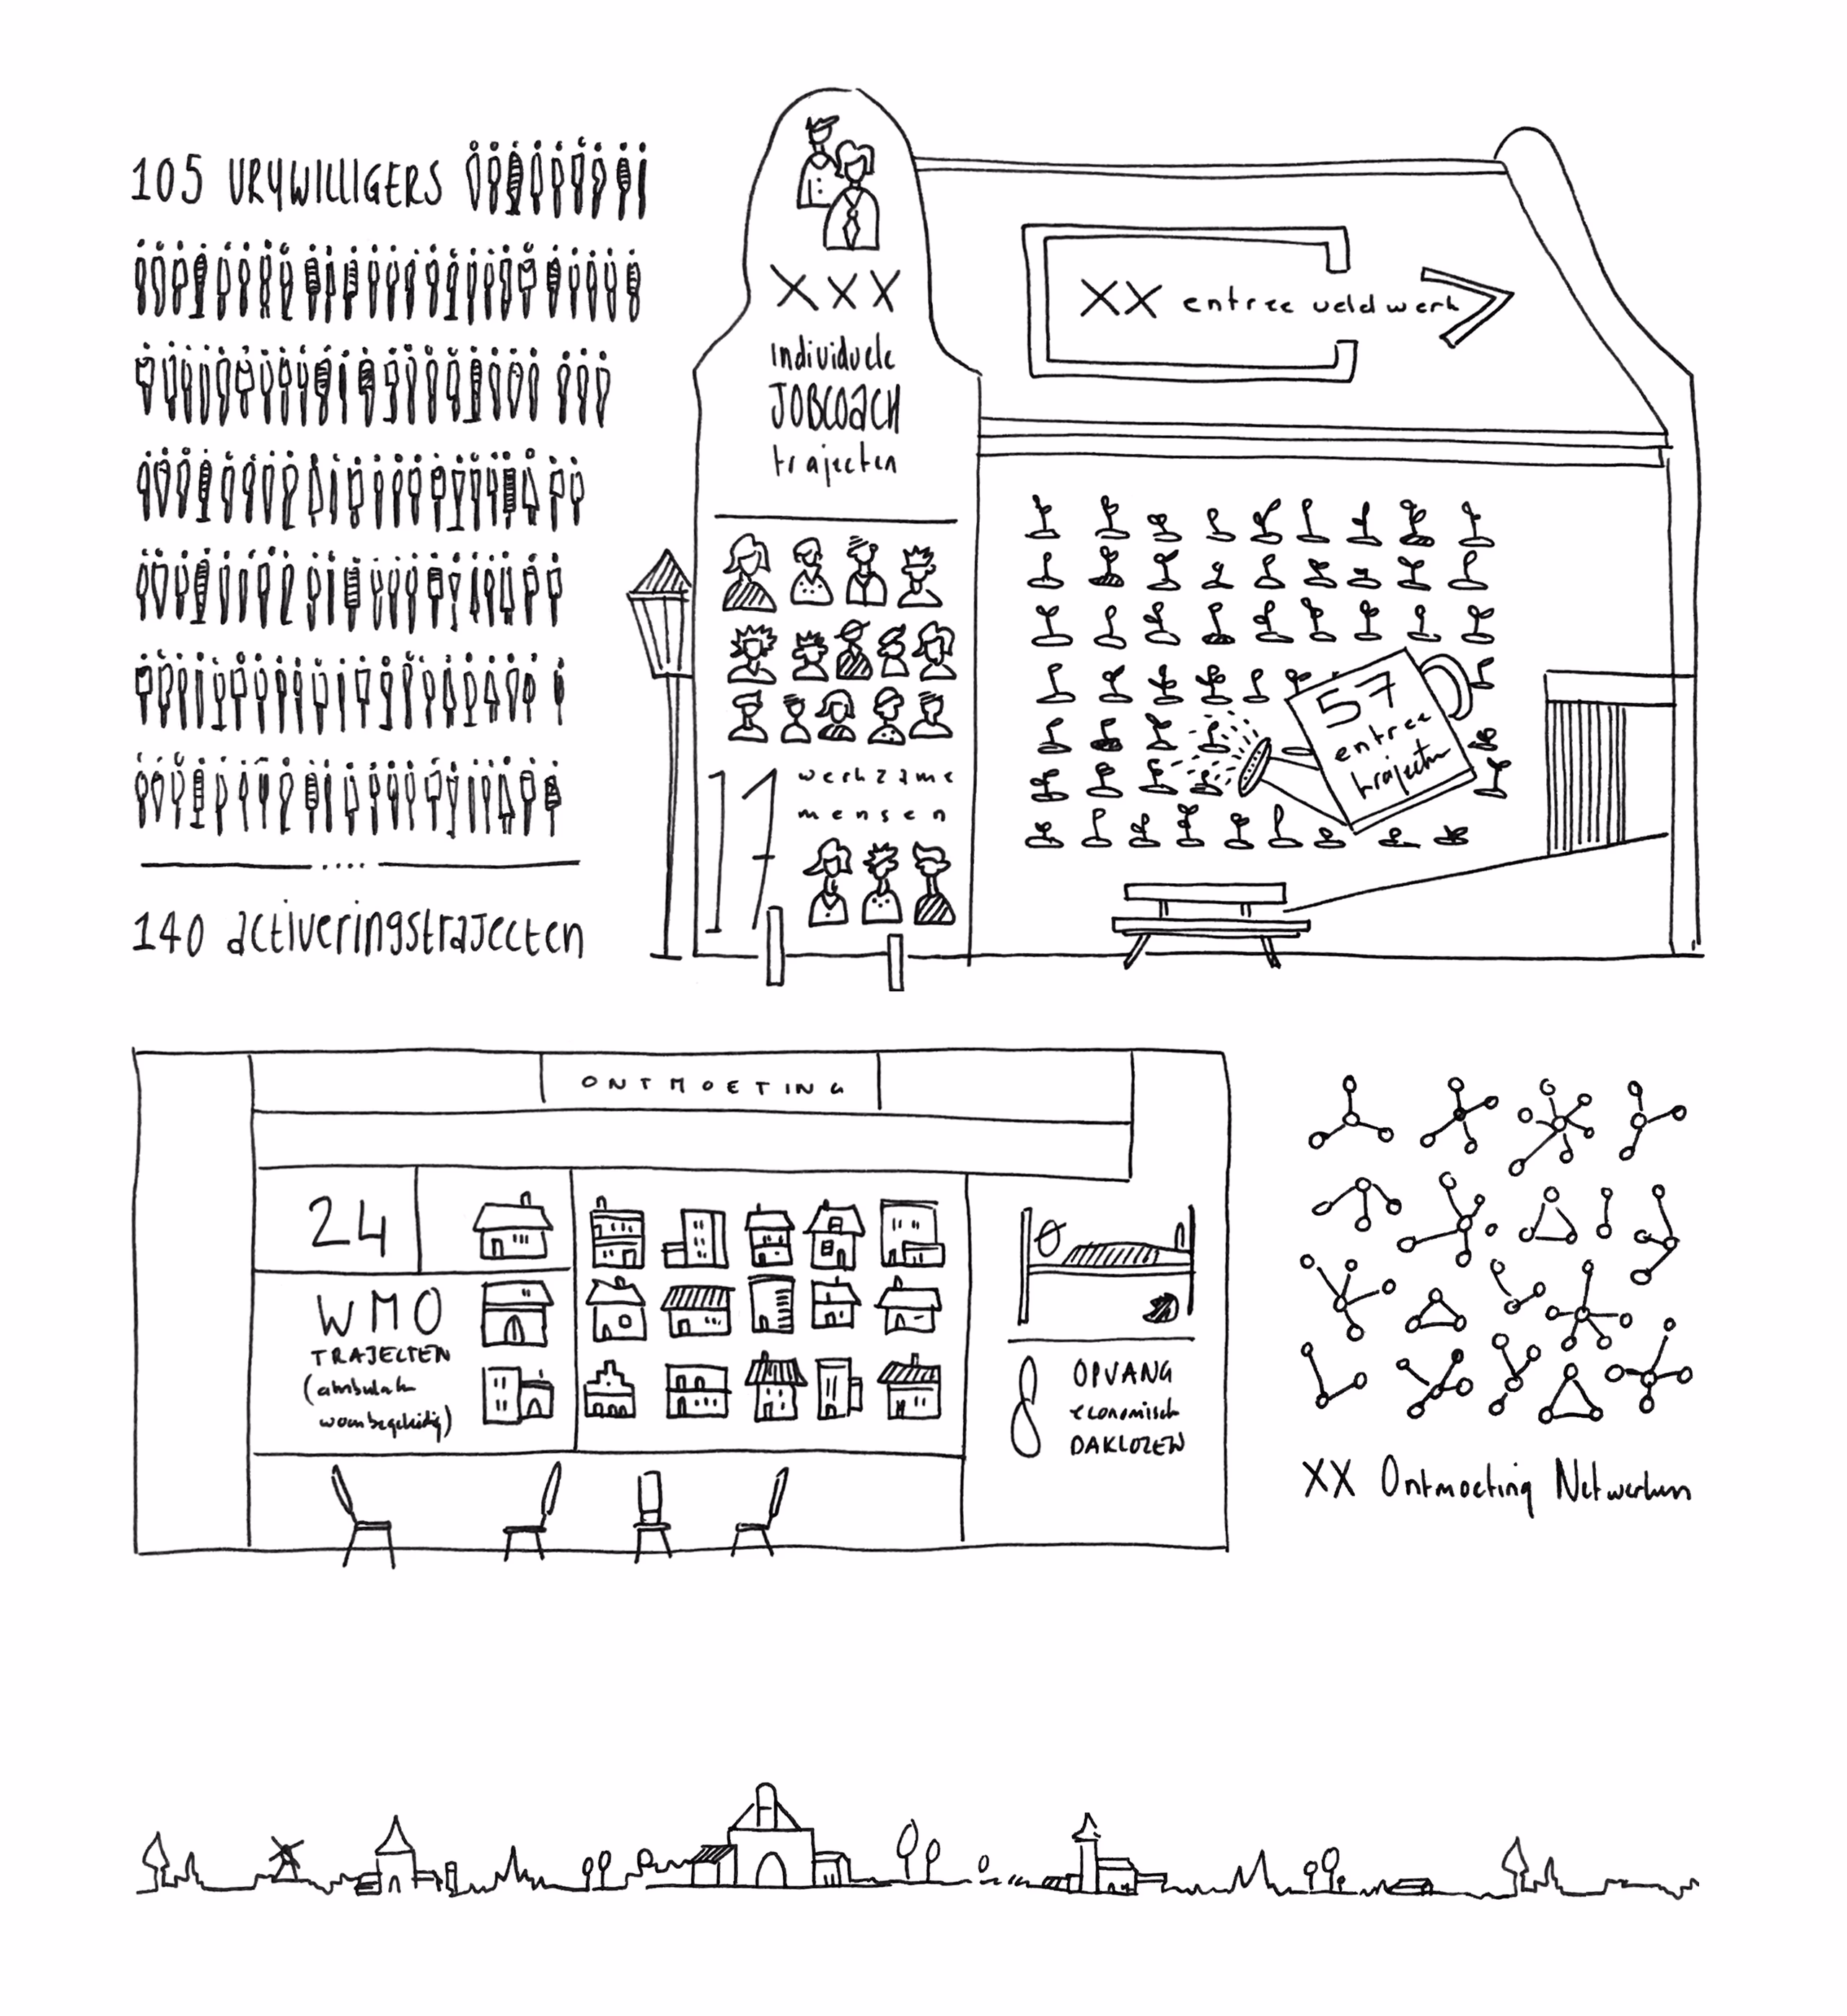 105 VRYWILLIGERS
140 activeringstrajecten
XXX
Individuele
JOBCOACH
trajecten
17 werkzame
mensen
XX entree veldwerk
57
entree
trajecten
ONTMOETING
24
WMO
TRAJECTEN
(ambulante
woonbegeleiding)
8 OPVANG
economisch
DAKLOZEN
XX Ontmoeting Netwerken